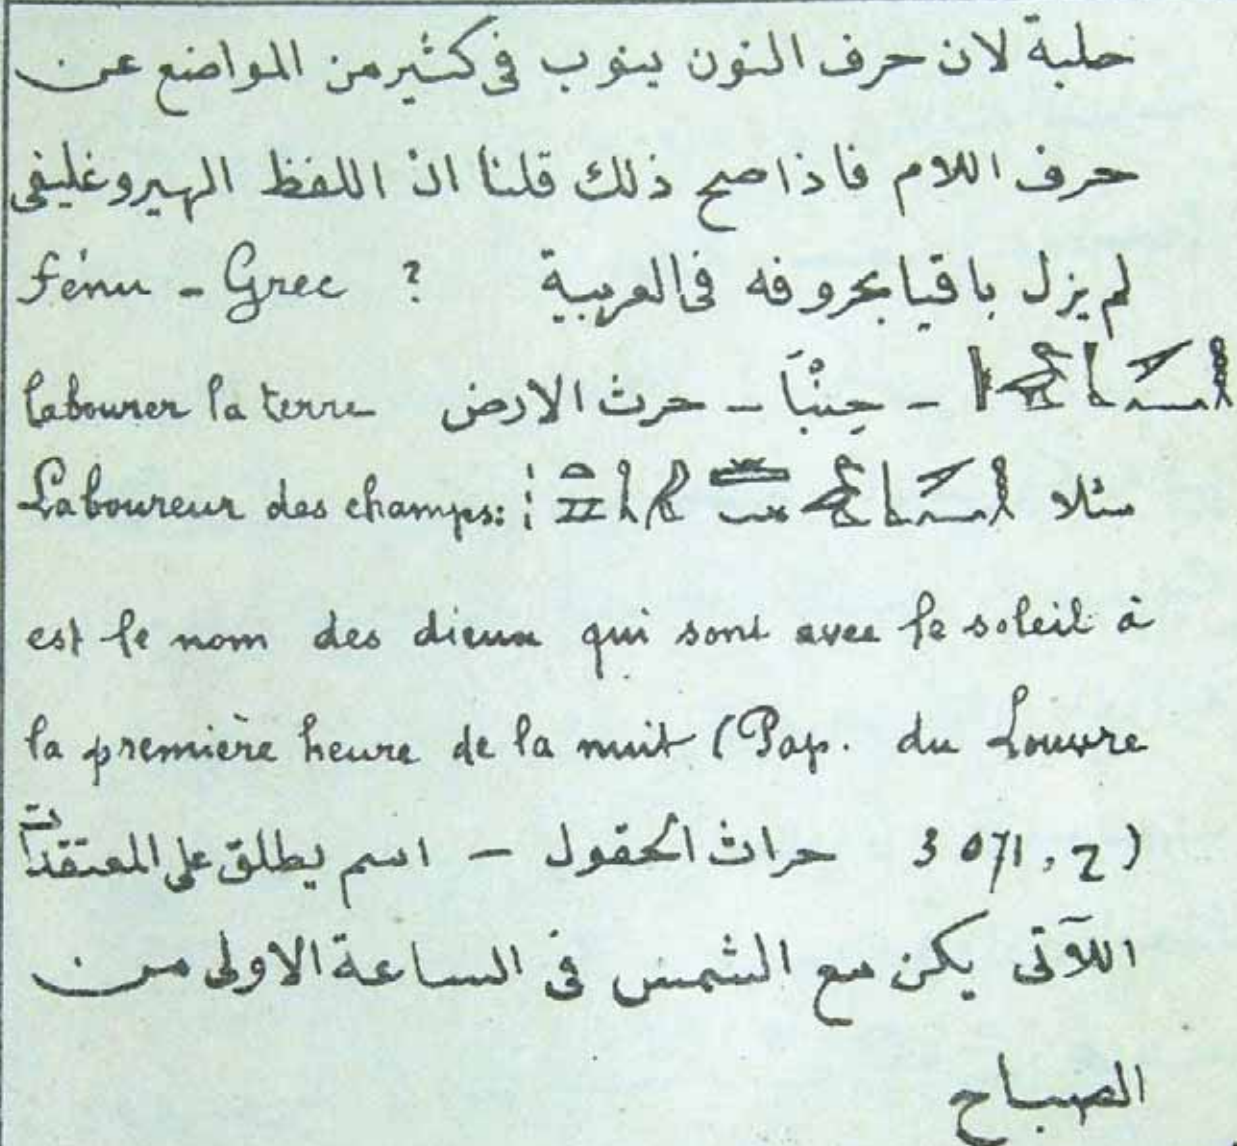 حلبة لان حرف النون ينوب فى كثير من المواضع عن
حرف اللام فاذا صح ذلك قلنا ان اللفظ الهيروغليفى
لم يزل باقيا بحروفه فى العربية ? Fénu - Grec
- حِنْبَا - حرث الارض labourer la terre
مثلا Laboureur des champs:
est le nom des dieux qui sont avec le soleil à
la première heure de la nuit (Pap. du Louvre
3071, 2) حراث الحقول - اسم يطلق على المعتقدات
اللآتى يكن مع الشمس فى الساعة الاولى من
الصباح